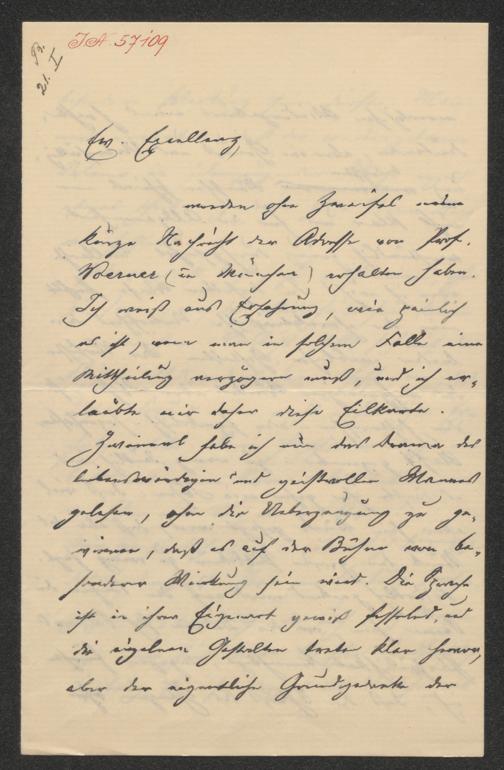 Br.
21. I
JA 57109
Ew. Excellenz,
werden ohne Zweifel meine
kurze Nachricht der Adresse von Prof.
Woerner (in München) erhalten haben.
Ich weiß aus Erfahrung, wie peinlich
es ist, wenn man in solchem Falle eine
Mittheilung verzögern muß, und ich er-
laubte mir daher diese Eilkarte.
Zweimal habe ich nun das Drama des
liebenswürdigen und geistvollen Mannes
gelesen, ohne die Ueberzeugung zu ge-
winnen, daß es auf der Bühne von be-
sonderer Wirkung sein wird. Die Sprache
ist in ihrer Eigenart gewiß fesselnd, und
die einzelnen Gestalten treten klar hervor,
aber der eigentliche Grundgedanke der